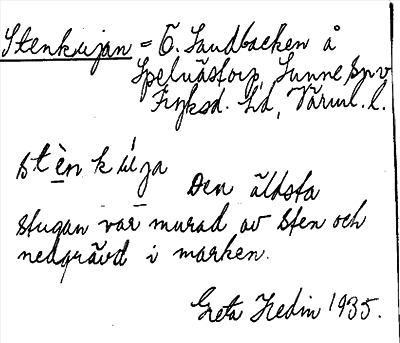 Stenkujan = Ö. Sandbacken å
Spelnästorp, Sunne sn v
Fryksd. hd, Värml. l.
stèn ku̇ja
Den äldsta
stugan var murad av sten och
nedgrävd i marken.
Greta Hedin 1935.